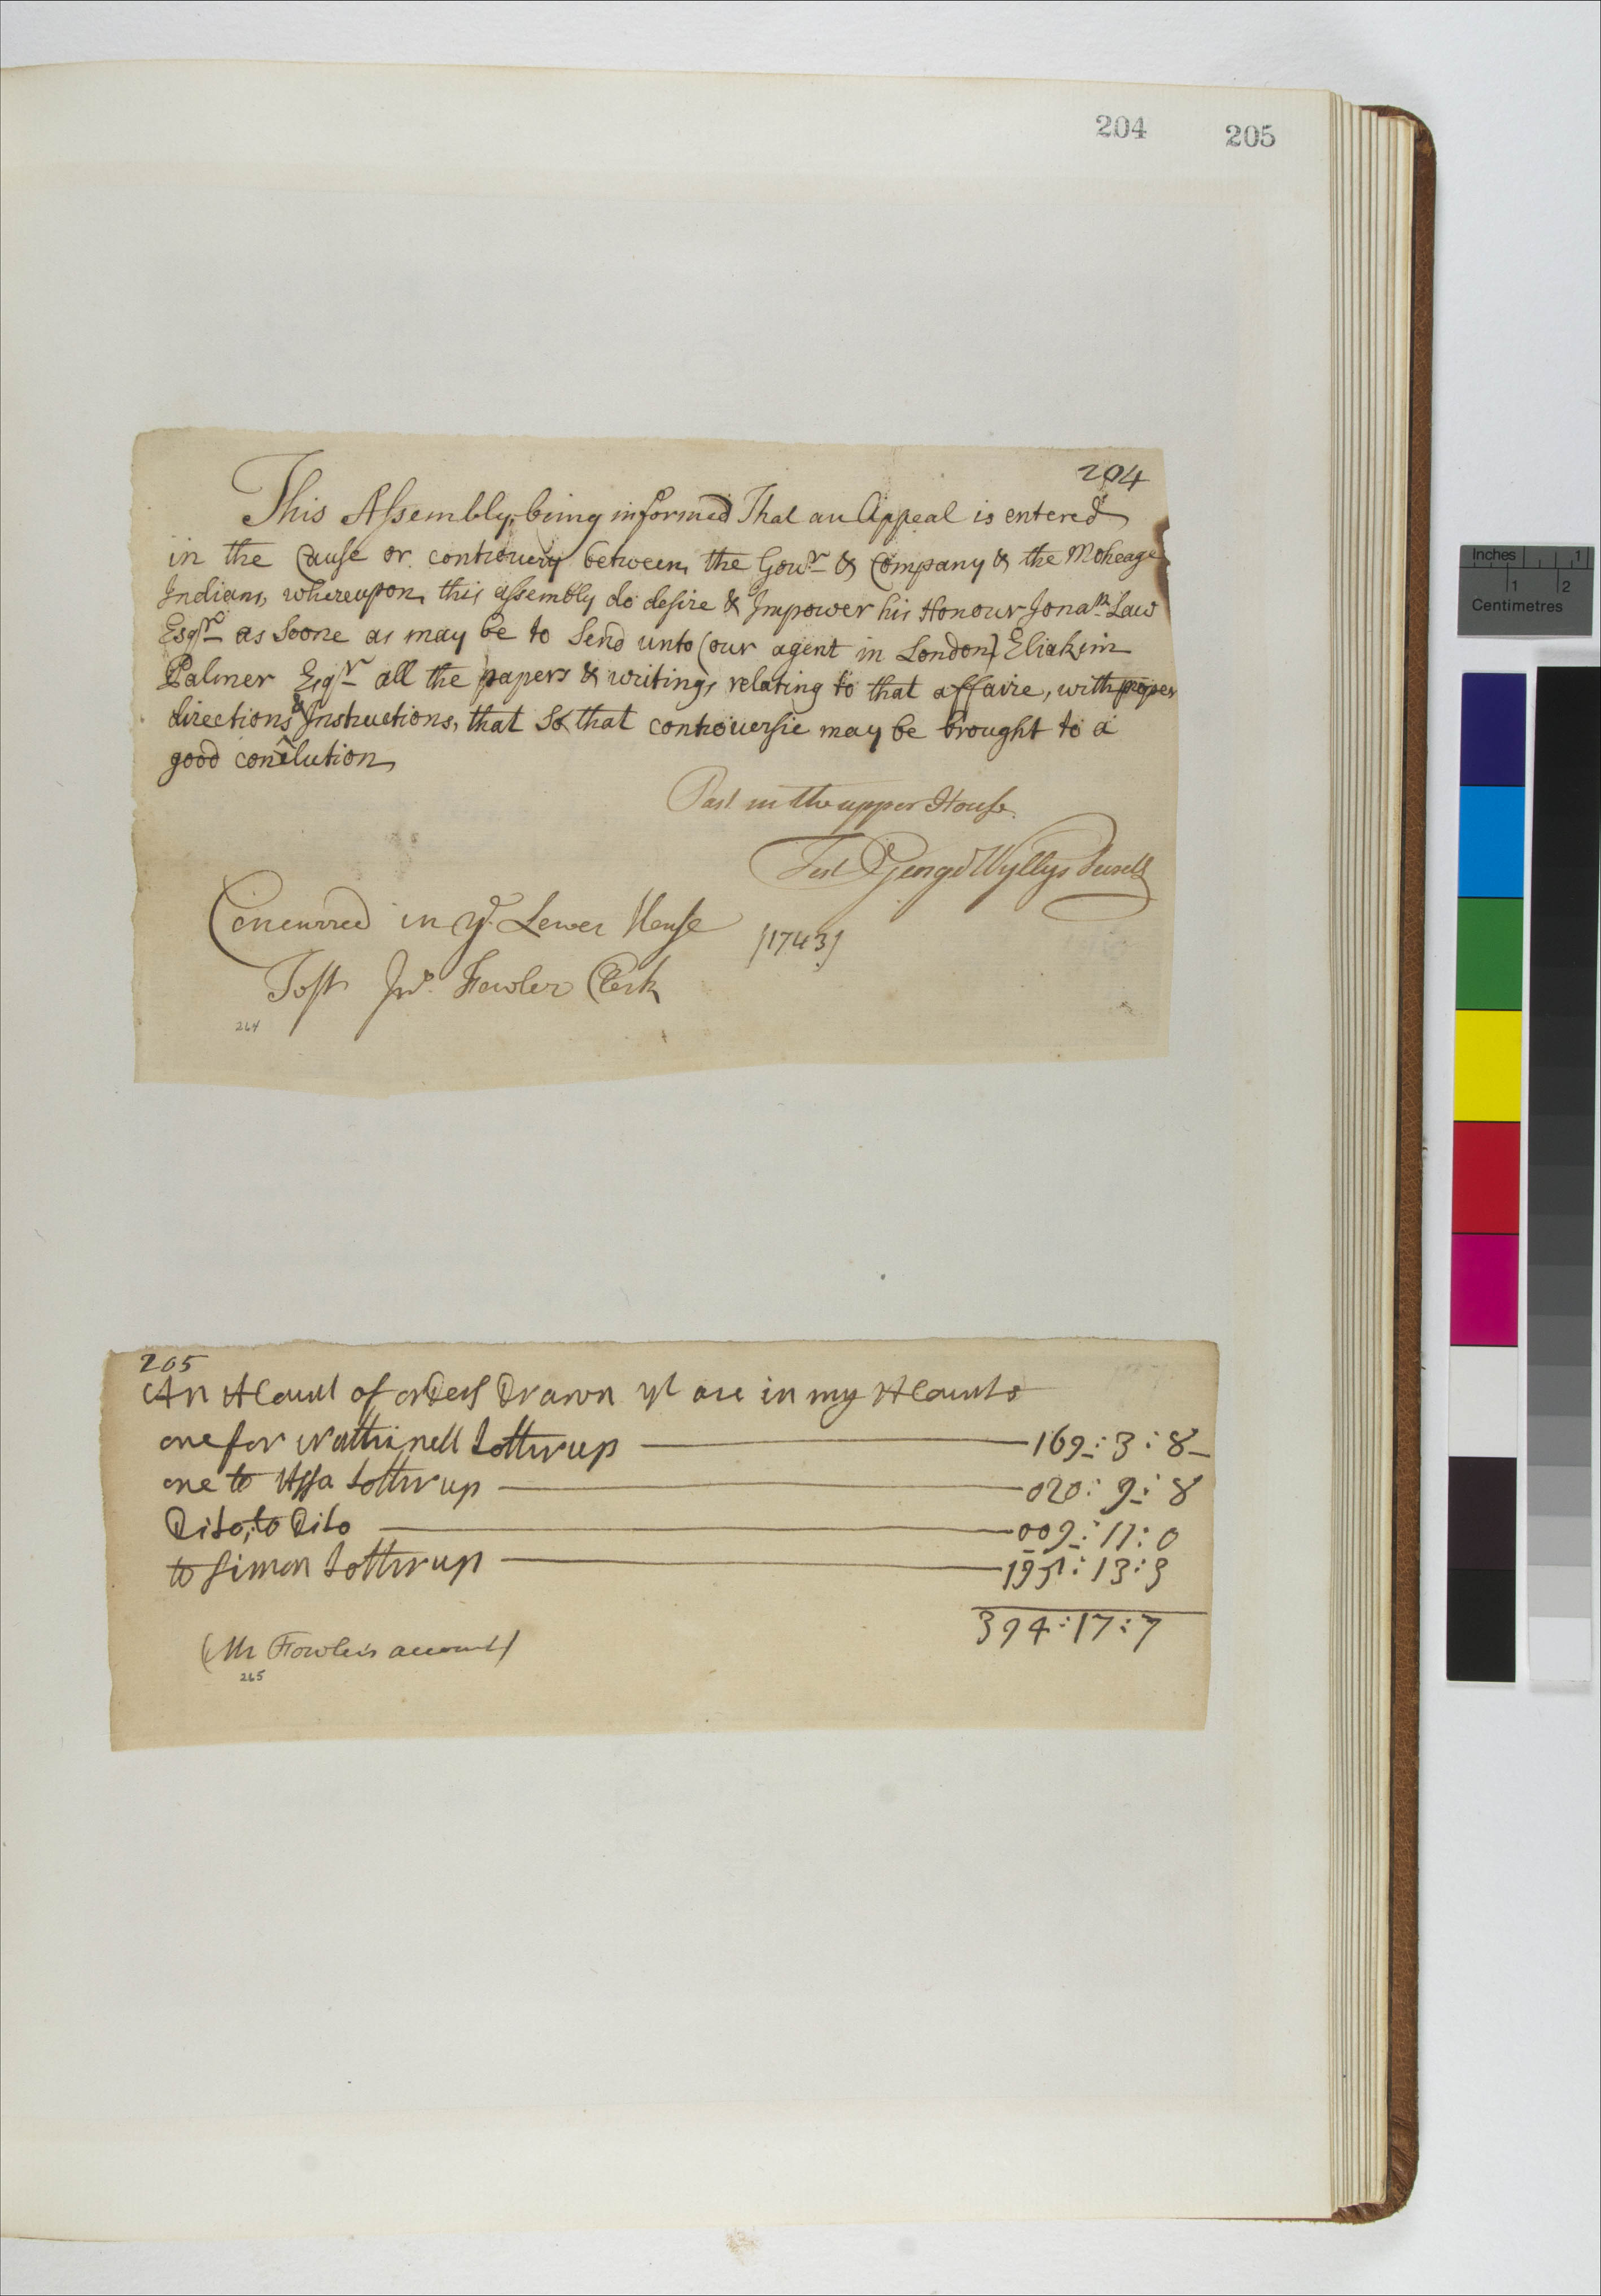 204 205
204
This Assembly, being informed That an Appeal is entered
in the Cause or controuery between the Gour & Company & the Moheage
Indians, whereupon this assembly do desire & Impower his Honour Jonan Law
Esqr as Soone as may be to Send unto (our agent in London) Eliakim
Palmer Esqr all the papers & writings relating to that affaire, with proper
directions & Instructions, that So that controuersie may be brought to a
good conclution
Past in the upper House.
Test George Wyllys Secrets
Concurred in ye Lower House
[1743]
Test Jno. Fowler Clerk
264
205
An Acount of orders Drawn yt are in my Acounts
one for Nathinell Lothrup 169:3:8
one to Assa Lothrup 020:9:8
Dito, to Dito 009:11:0
to Simon Lothrup 195:13:3
394:17:7
(Mr Fowler's account)
265
Inches 1
1 2
Centimetres